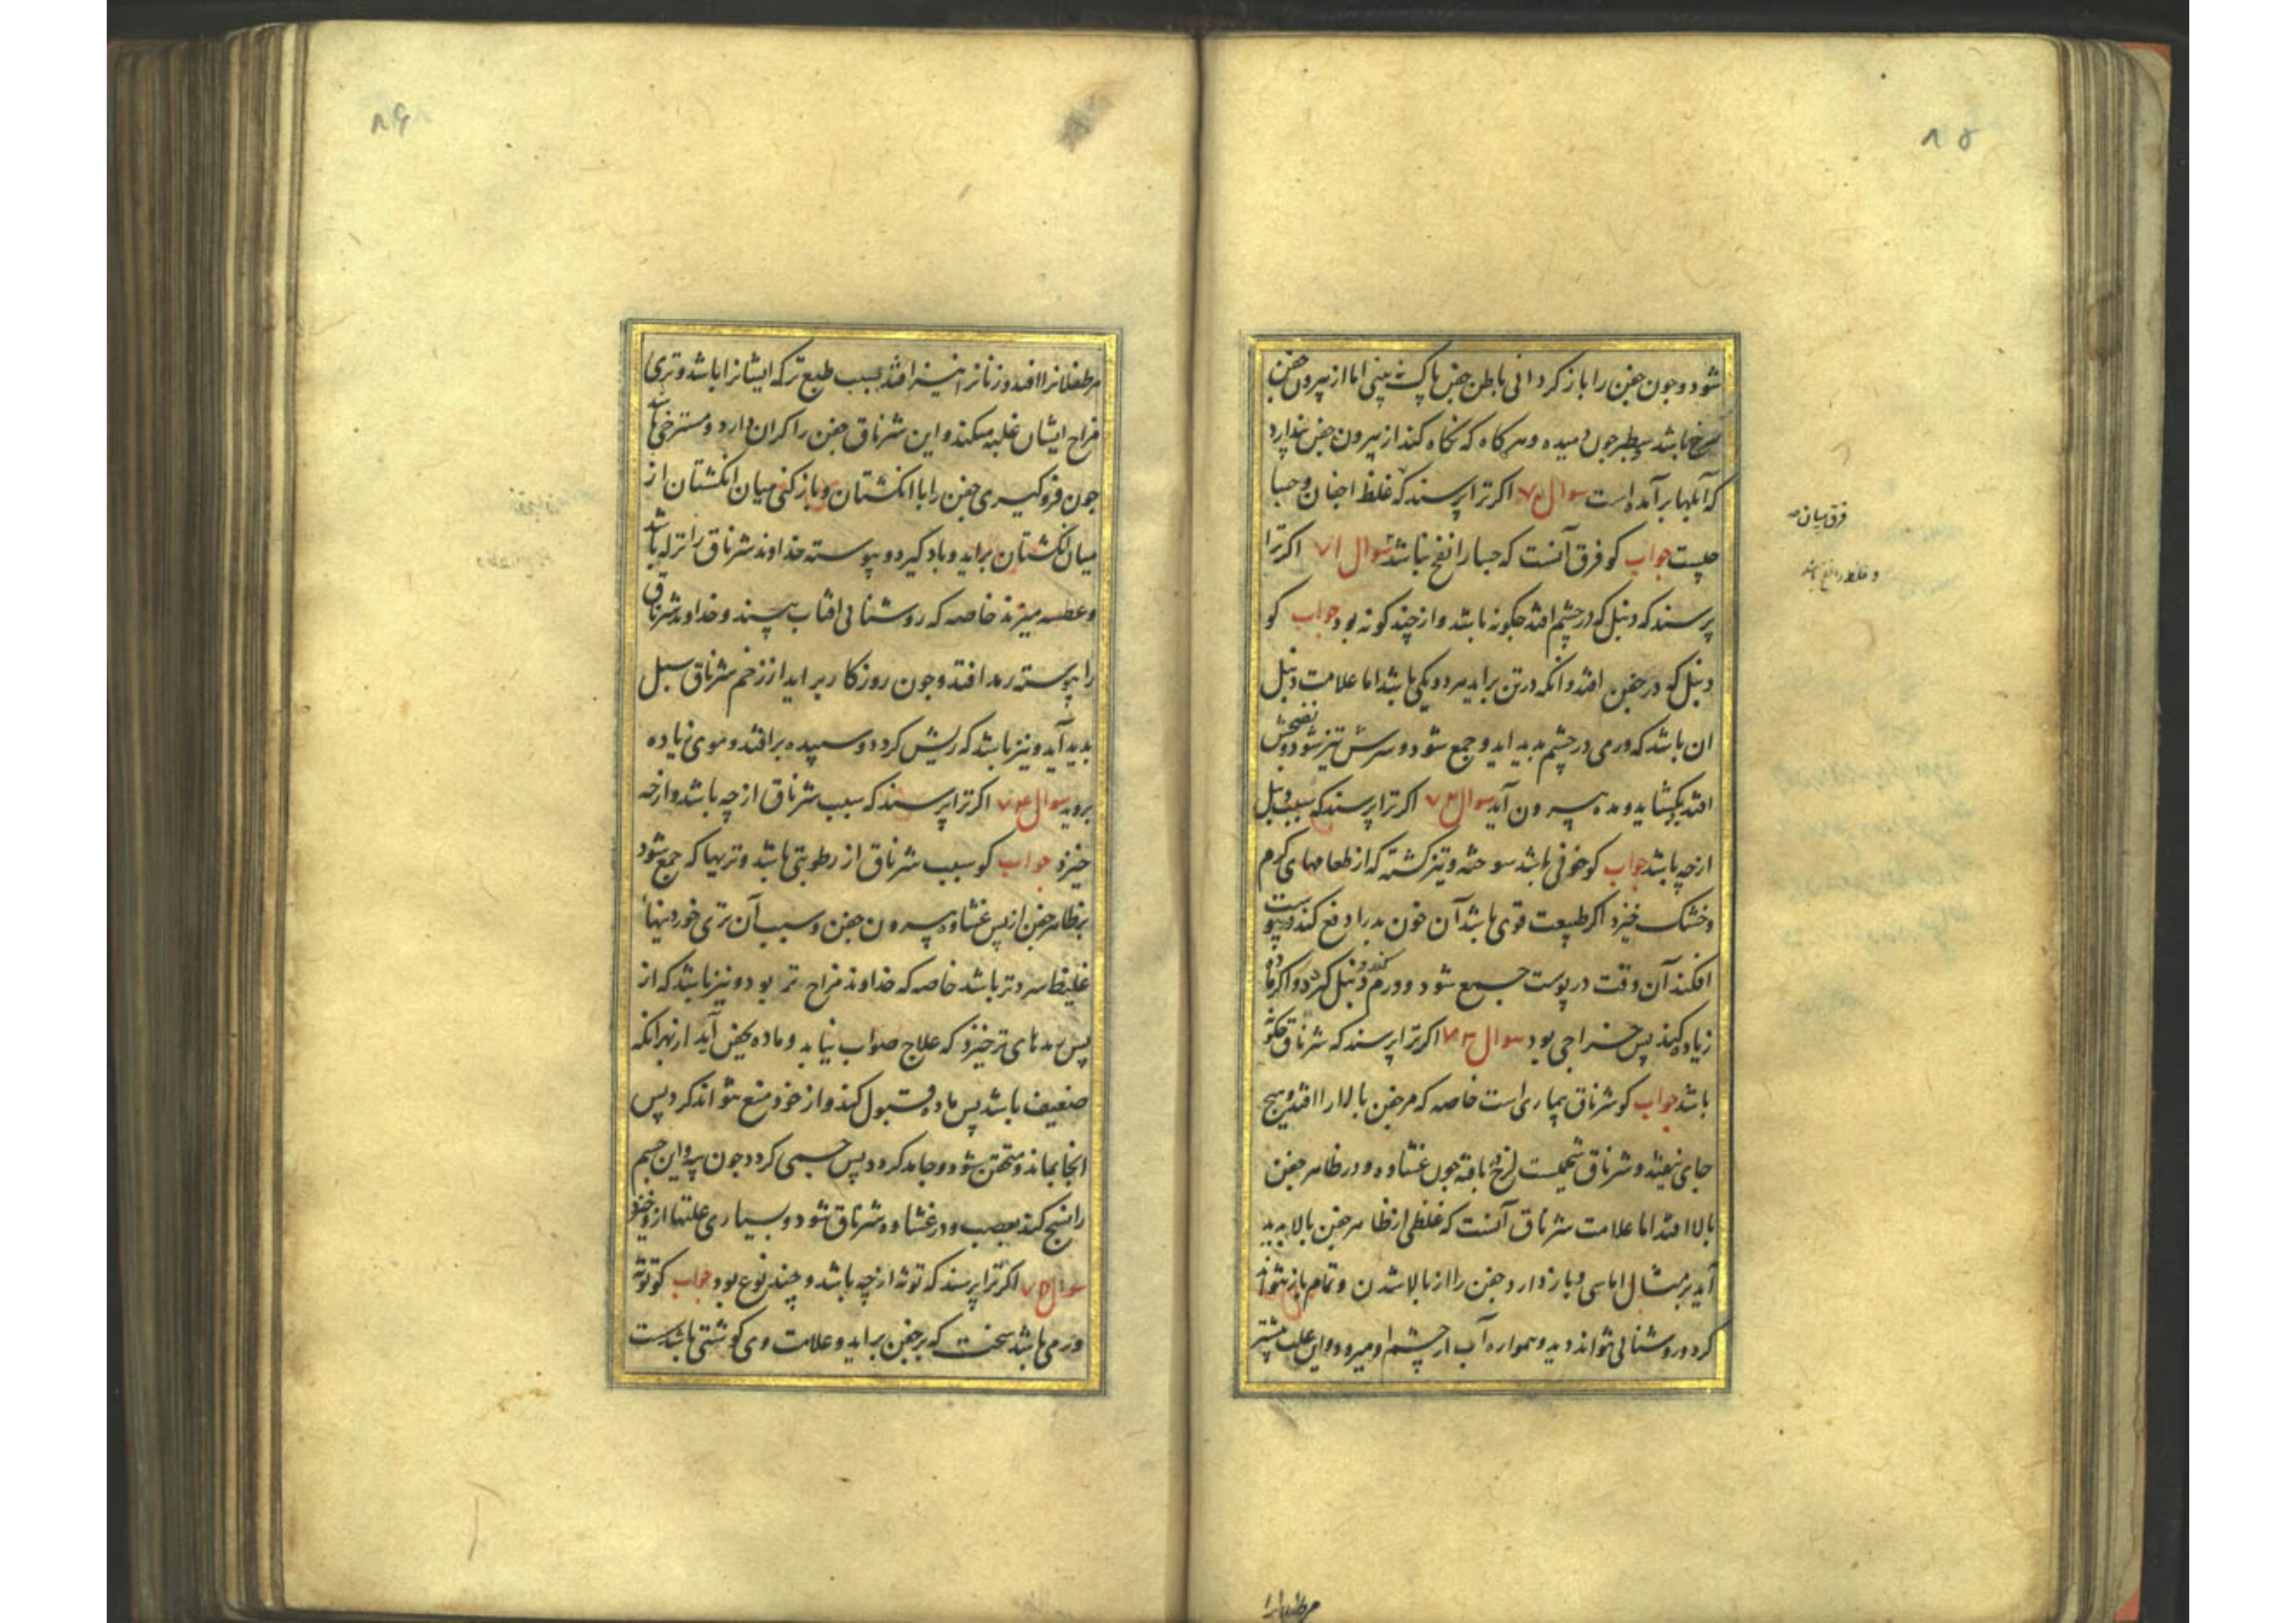 ۸۵
شود و جون جفن را باز کردانی باطن جفن پاک بینی اما از بیرون جفن
سرخ باشد سطبر جون دمیده و هرکاه که نکاه کند از بیرون جفن بندارد
که آبلها برآمده است سوال ۷۰ اکر ترا پرسند که غلظ اجفان و جسا
جیست جواب کو فرق آنست که جسا را نفخ نباشد سوال ۷۱ اکر ترا
پرسند که دنبل که در چشم افتد جکونه باشد و از چند کونه بود جواب کو
دنبل که در جفن افتد و انکه در تن براید هر دو یکی باشد اما علامت دنبل
ان باشد که ورمی در چشم بدید اید و جمع شود و سرش تیز شود و نضجش
افتد بکشاید و مده بیرون آید سوال ۷۲ اکر ترا پرسند که سبب دنبل
ازچه باشد جواب کو خونی باشد سوخته و تیز کشته که از طعامهای کرم
و خشک خیزد اکر طبیعت قوی باشد آن خون بد را دفع کند و بپوست
افکند آن وقت در پوست جمع شود و ورم کند و دنبل کردد و اکر ماده
زیاده کند پس خراجی بود سوال ۷۳ اکر ترا پرسند که شرناق جکونه
باشد جواب کو شرناق بیماری است خاصه که مر جفن بالا را افتد و هیج
جای نیفتد و شرناق شحمیست لزج بافته جون غشاوه و در ظاهر جفن
بالا افتد اما علامت شرناق آنست که غلظی از ظاهر جفن بالا بدید
آید بر مثال اماسی و باز دارد جفن را از بالا شدن و تمام باز نتواند
کرد و روشنائی نتواند دید و همواره آب از چشم او میرود و این علت بیشتر
فرق میان
و غلظ را نفخ باشد
مر طفلانرا
۸۶
مر طفلانرا افتد و زنانرا نیز افتد بسبب طبع تر که ایشانرا باشد و تری
مزاج ایشان غلبه میکند و این شرناق جفن را کران دارد و مسترخی باشد
جون فروکیری جفن را با انکشتان و باز کنی میان انکشتان از
میان انکشتان براید و باد کیرد و پیوسته خداوند شرناق را نزله باشد
و عطسه میزند خاصه که روشنائی افتاب بیند و خداوند شرناق
را پیوسته رمد افتد و جون روزکار براید از زخم شرناق سبل
بدید آید و نیز باشد که ریش کردد و سپیده برافتد و موی زیاده
بروید سوال ۷۴ اکر ترا پرسند که سبب شرناق از چه باشد و ازچه
خیزد جواب کو سبب شرناق از رطوبتی باشد و تریها که جمع شود
بظاهر جفن از پس غشاوه بیرون جفن و سبب آن تری خوردنیهاء
غلیظ سرد تر باشد خاصه که خداوند مزاج تر بود و نیز باشد که از
پس رمدهای تر خیزد که علاج صواب نیابد و ماده بجفن آید از بهر انکه
ضعیف باشد پس ماده قبول کند و از خود منع نتواند کرد پس
انجا بماند و متحقن شود و جامد کردد پس جسمی کردد جون پیه و این جسم
را نسج کند بعصب و در غشاوه و شرناق شود و بسیاری علتها از وی خیزد
سوال ۷۵ اکر ترا پرسند که توثه ازچه باشد و چند نوع بود جواب کو توثه
ورمی باشد سخت که بر جفن براید و علامت وی کوشتی باشد سست